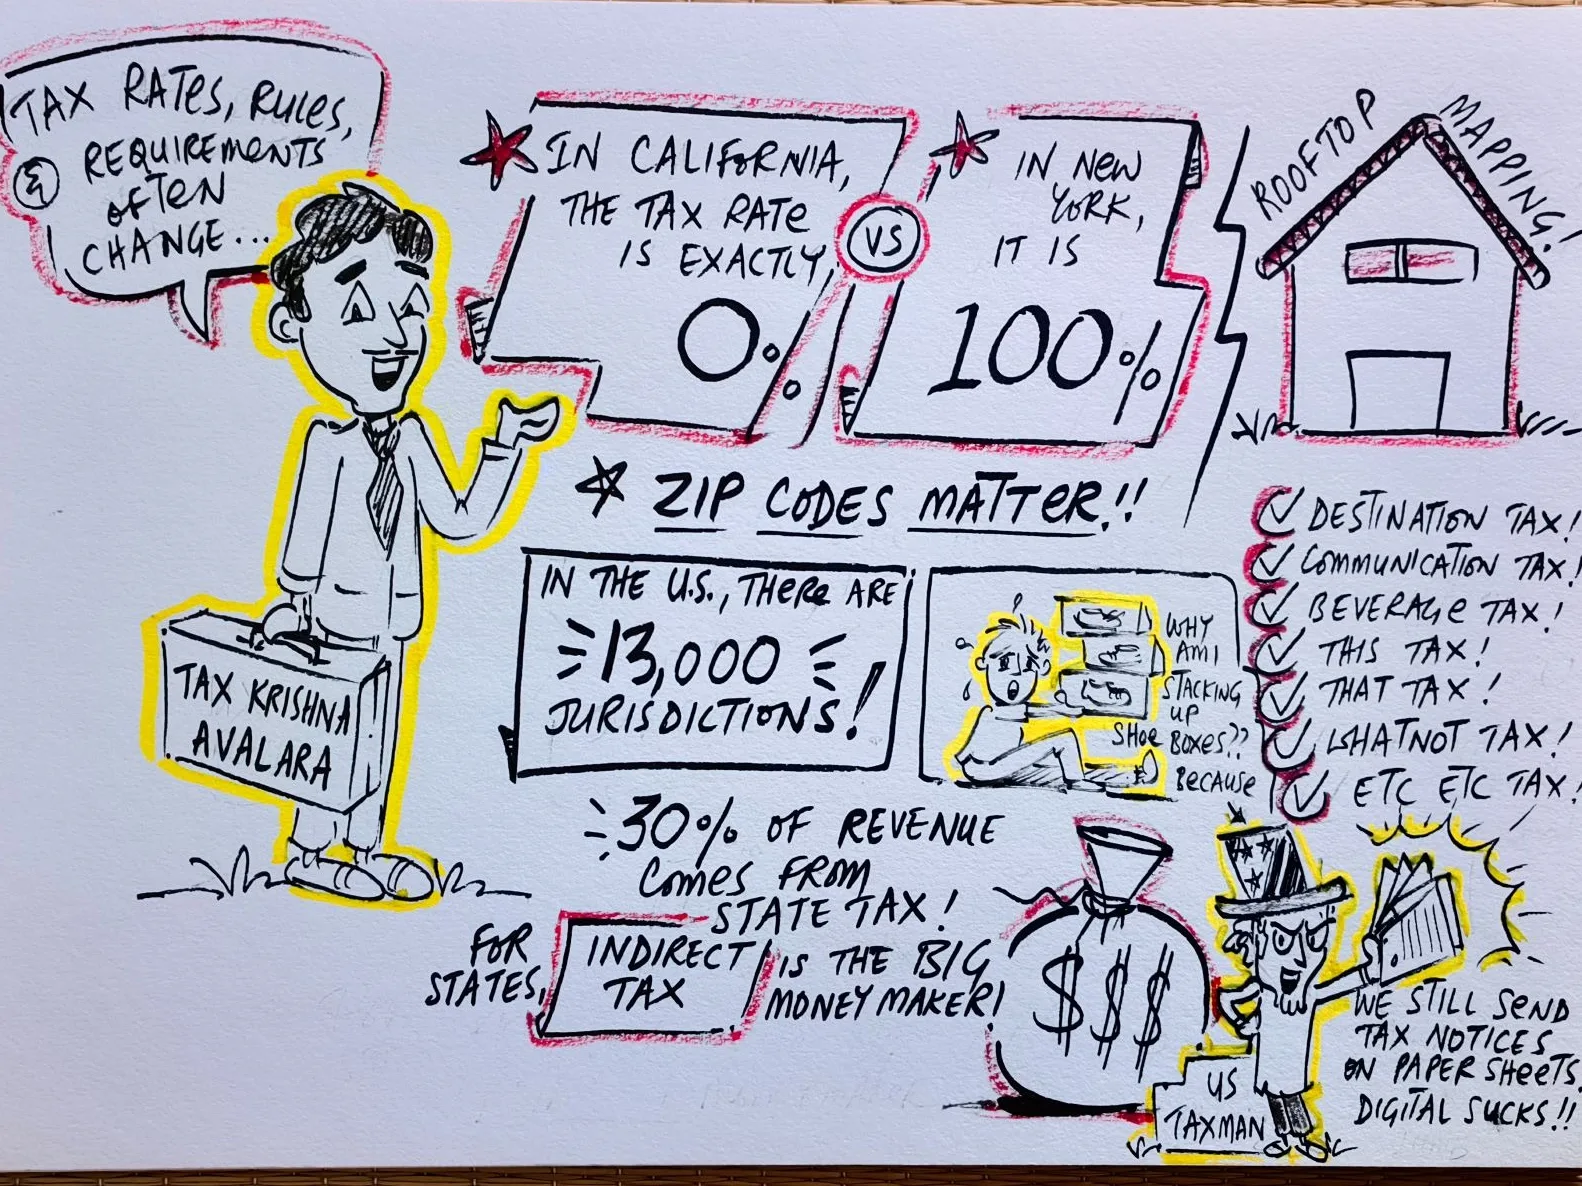 TAX RATES, RULES,
& REQUIREMENTS
OFTEN
CHANGE...
TAX KRISHNA
AVALARA
IN CALIFORNIA,
THE TAX RATE
IS EXACTLY,
0%
VS
IN NEW
YORK,
IT IS
100%
ZIP CODES MATTER!!
ROOFTOP MAPPING!
IN THE U.S., THERE ARE
13,000
JURISDICTIONS!
WHY
AM I
STACKING
UP
SHOE BOXES??
BECAUSE
DESTINATION TAX!
COMMUNICATION TAX!
BEVERAGE TAX!
THIS TAX!
THAT TAX!
WHATNOT TAX!
ETC ETC TAX!
30% OF REVENUE
COMES FROM
STATE TAX!
FOR
STATES,
INDIRECT
TAX
IS THE BIG
MONEY MAKER!
$$$
US
TAXMAN
WE STILL SEND
TAX NOTICES
ON PAPER SHEETS.
DIGITAL SUCKS!!